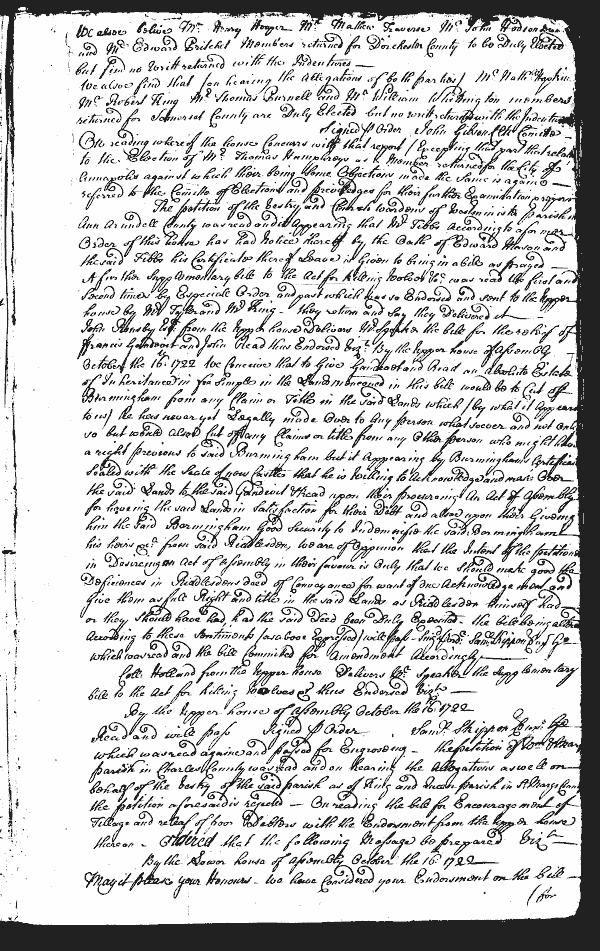 We alsoe belive Mr. Henry Hooper Mr. Mathew Traverse Mr. John Hodson
and Mr. Edward Pritchet Members returned for Dorchester County to be Duly Elected
but find no Writt returned with the Indentures —
We alsoe find that (on hearing the Allegations of both parties) Mr. Nath. Hopkins
Mr. Robert King Mr. Thomas Purnell and Mr. William Whittington members
returned for Somerset County are Duly Elected but no writt returned with the Indenture
Signed p Order John Gibson Clk Comitte
On reading whereof the house Concurrs with that report (Excepting that part that relates
to the Election of Mr. Thomas Humphreys as a Member returned for the City of
Annapolis against which their being some Objections made the Same is againe
referred to the Comitte of Elections and priviledges for their further Examination
The petition of the Vestry and Church Wardens of Westminister parish in
Ann Arundell County was read and it Appearing that Mr. Tibbs According to a former
Order of this house has had Notice thereof by the Oath of Edward Mason and
the said Tibbs his Certificate thereof Leave is Given to bring in a bill as prayed —
A further Supplementary bill to the Act for Killing Wolves &c. was read the first and
Second times by Especiale Order and past which was so Endorsed and sent to the Upper
house by Mr. and Mr. King — they return and Say they Delivered it —
John Esqr. from the Upper house Delivers Mr. Speaker the bill for the reliefe of
Francis and John Read thus Endorsed Vizt. By the Upper house of Assembly
October the 16: 1722 We Conceive that to Give and Read an Absolute Estate
of Inheritance in fee Simple in the Lands mentioned in this bill would be to Cut off
Burmingham from any Claim or Title in the said Lands which (by what it Appears
to us) he has never yet Legally made Over to Any person what soever and not Only
so but would alsoe Cut off any Claims or title from any Other person who might have
a right previous to said Burmingham but it Appearing by Burminghams Certificate
Sealed with the Seale of that he is Willing to Acknowledge and make Over
the said Lands to the said and Read upon their procureing An Act of Assembly
for haveing the said Land in Satisfaction for their Debt and alsoe upon their Giveing
him the said Burmingham Good Security to Indemnifie the said Burmingham
his heirs &c. from said Readlesden, we are of Oppinion that the Intent of the petitioners
in Desireing an Act of Assembly in their favour is Only that we should make good the
Deficiences in Readlesdens deed of Conveyance for want of due Acknowledgement and
Give them as full Right and title in the said Lands as Readlesden himself had
or they should have had, had the said Deed been Duly Executed — the bill being altered
According to these Sentiments (as above Expressed) will pass — Sam. Skippon
which was read and the bill Committed for Amendment Accordingly —
Coll. Holland from the Upper house Delivers Mr. Speaker the Supplementary
bill to the Act for Killing Wolves &c thus Endorsed Vizt. —
By the Upper house of Assembly October the 16: 1722
Read and will pass Signed p Order Saml. Skippon
which was read againe and passed for Engrossing — the petition of
parish in Charles County was read and on hearing the Allegations as well on
behalf of the Vestry of the said parish as of King and Queen parish in St. Marys County
the petition aforesaid is rejected — On reading the bill for Encouragement of
Tillage and releaf of poor Debtors with the Endorsement from the Upper house
thereon — Ordered that the following Message be prepared Vizt.
By the Lower house of Assembly October the 16: 1722
May it please your Honours — We have Considered your Endorsment on the bill
(for